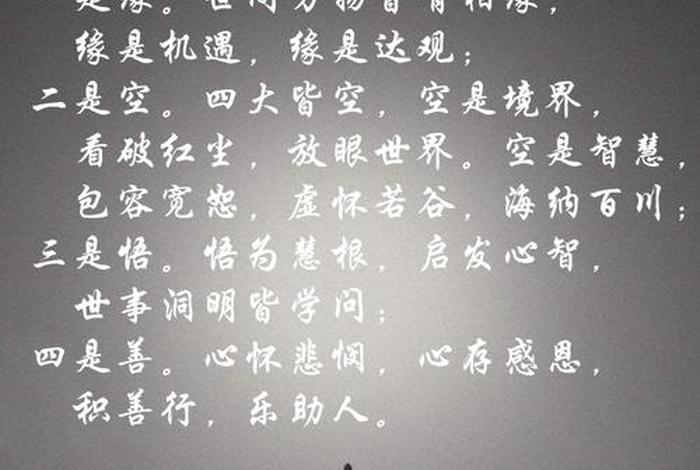 是缘。世间万物皆有相缘，
缘是机遇，缘是达观；
二是空。四大皆空，空是境界，
看破红尘，放眼世界。空是智慧，
包容宽恕，虚怀若谷，海纳百川；
三是悟。悟为慧根，启发心智，
世事洞明皆学问；
四是善。心怀悲悯，心存感恩，
积善行，乐助人。